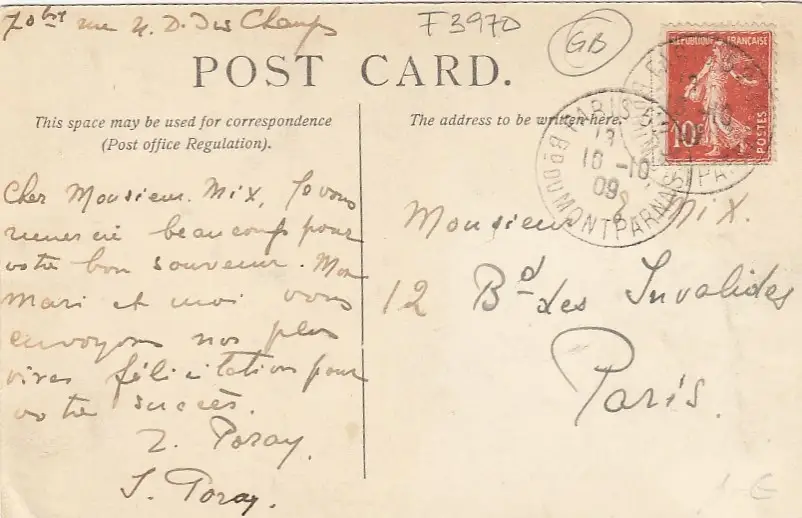 70bis rue N. D. des Champs
F3970
GB
POST CARD.
This space may be used for correspondence
(Post office Regulation).
The address to be written here.
REPUBLIQUE FRANÇAISE
10c
POSTES
PARIS
13
16 -10
09
Bd DU MONTPARNASSE
Cher Monsieur Mix, Je vous
remercie beaucoup pour
votre bon souvenir. Mon
Mari et moi vous
envoyons nos plus
vives félicitations pour
votre succès.
Z. Poray.
S. Poray.
Monsieur Mix.
12 Bd des Invalides
Paris.
1 €